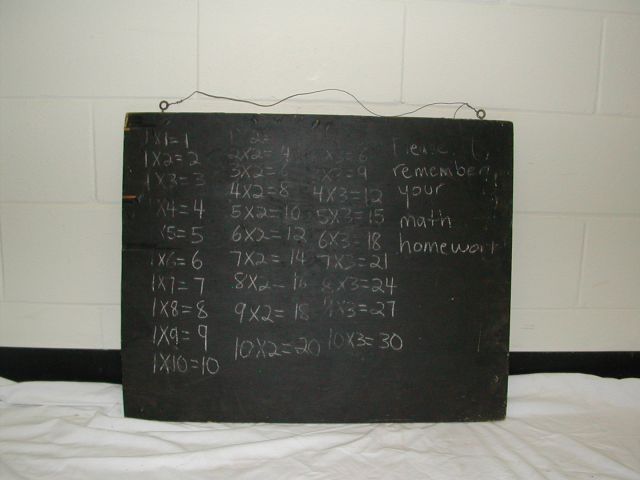 1X1=1
1X2=2
1X3=3
1X4=4
1X5=5
1X6=6
1X7=7
1X8=8
1X9=9
1X10=10
1X2=
2X2=4
3X2=6
4X2=8
5X2=10
6X2=12
7X2=14
8X2=16
9X2=18
10X2=20
X3=6
X3=9
4X3=12
5X3=15
6X3=18
7X3=21
8X3=24
9X3=27
10X3=30
Please
remember
your
math
homework